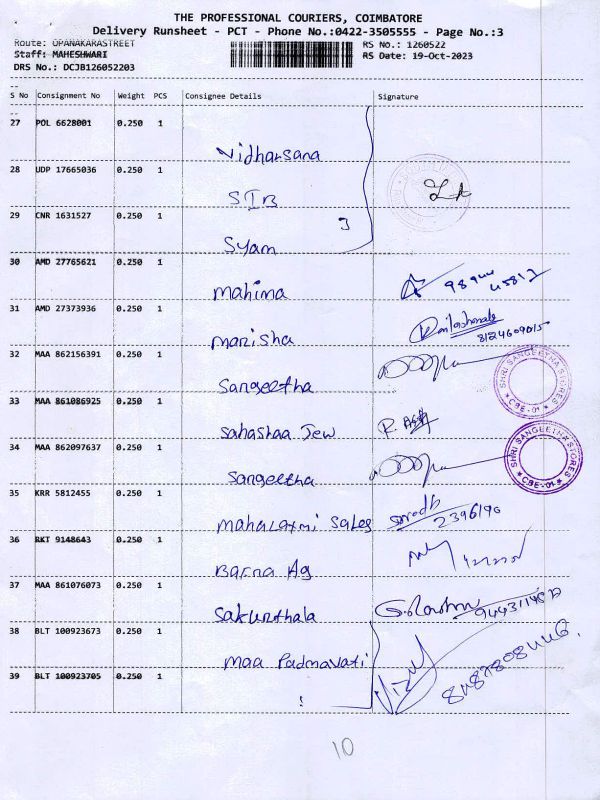 THE PROFESSIONAL COURIERS, COIMBATORE
Delivery Runsheet - PCT - Phone No.:0422-3505555 - Page No.:3
Route: OPANAKARASTREET
RS No.: 1260522
Staff: MAHESHWARI
RS Date: 19-Oct-2023
DRS No.: DCJB126052203
S No Consignment No Weight PCS Consignee Details Signature
27 POL 6628001 0.250 1
Vidharsana
28 UDP 17665036 0.250 1
SIB
29 CNR 1631527 0.250 1
Syam
30 AMD 27765621 0.250 1
Mahima
98944
45817
31 AMD 27373936 0.250 1
Marisha
8124609015
32 MAA 862156391 0.250 1
Sangeetha
SHRI SANGEETHA STORES
* CBE-01 *
33 MAA 861086925 0.250 1
Sahashaa Jew
34 MAA 862097637 0.250 1
Sangeetha
SHRI SANGEETHA STORES
* CBE-01 *
35 KRR 5812455 0.250 1
Mahalaxmi Sales
2396190
36 RKT 9148643 0.250 1
Barna Ag
37 MAA 861076073 0.250 1
Sakunthala
38 BLT 100923673 0.250 1
Maa Padmavati
8487808446
39 BLT 100923705 0.250 1
10